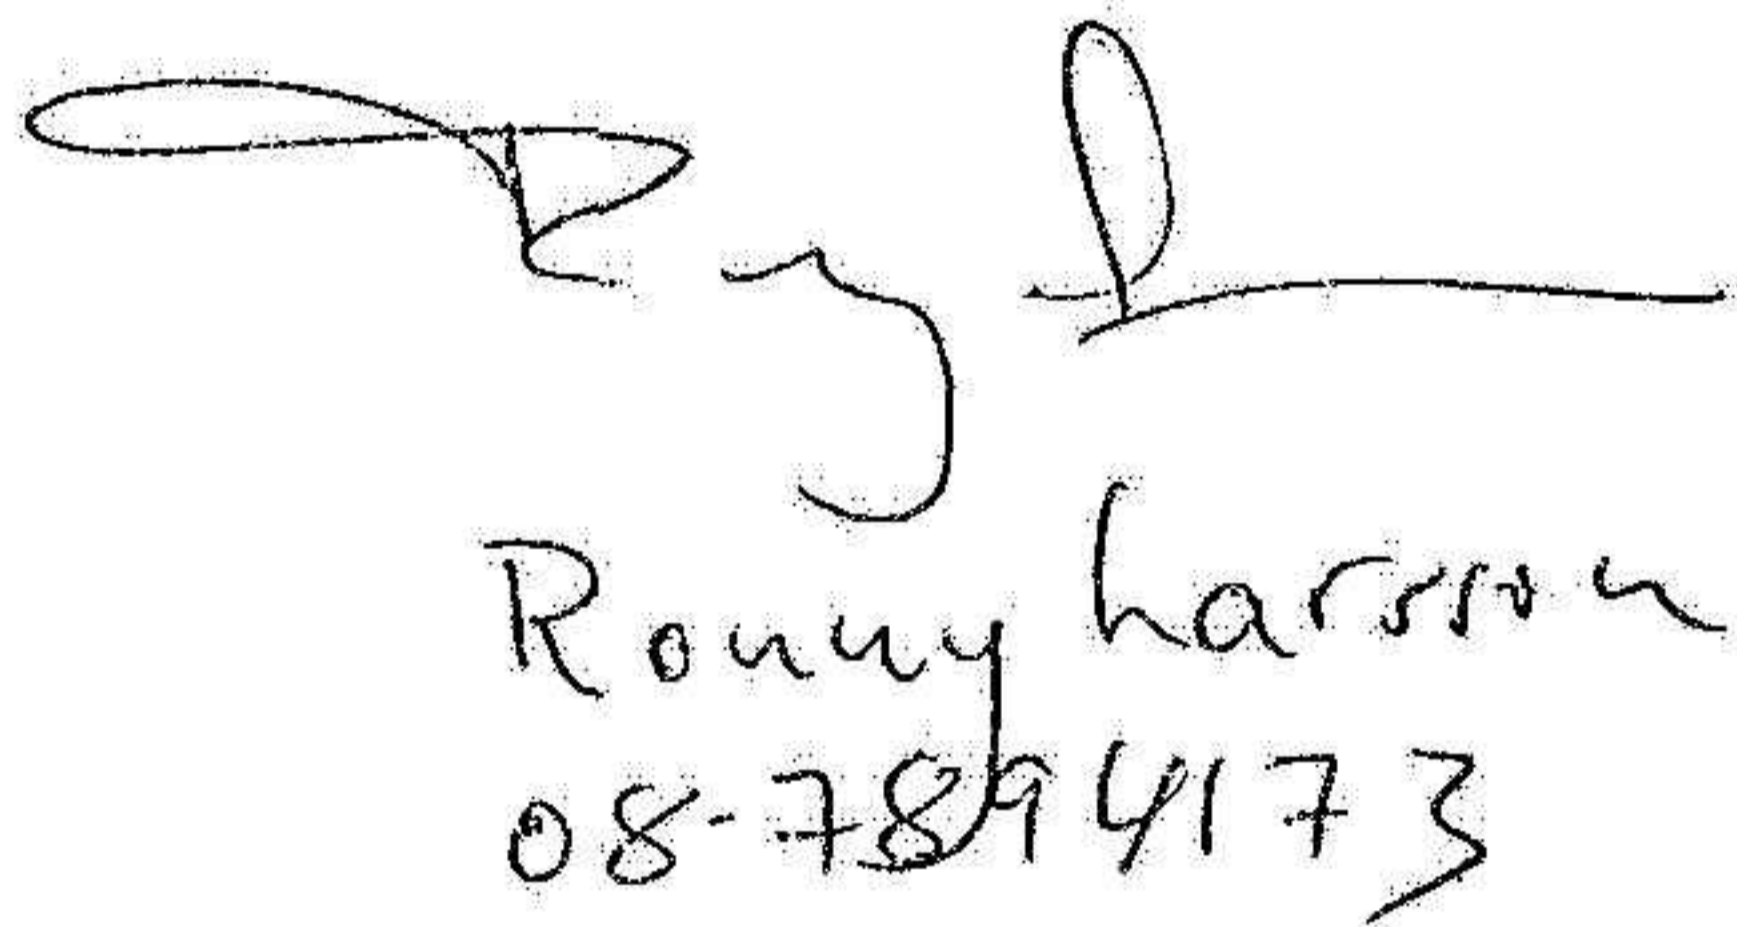 Ronny Larsson
08-789 4173